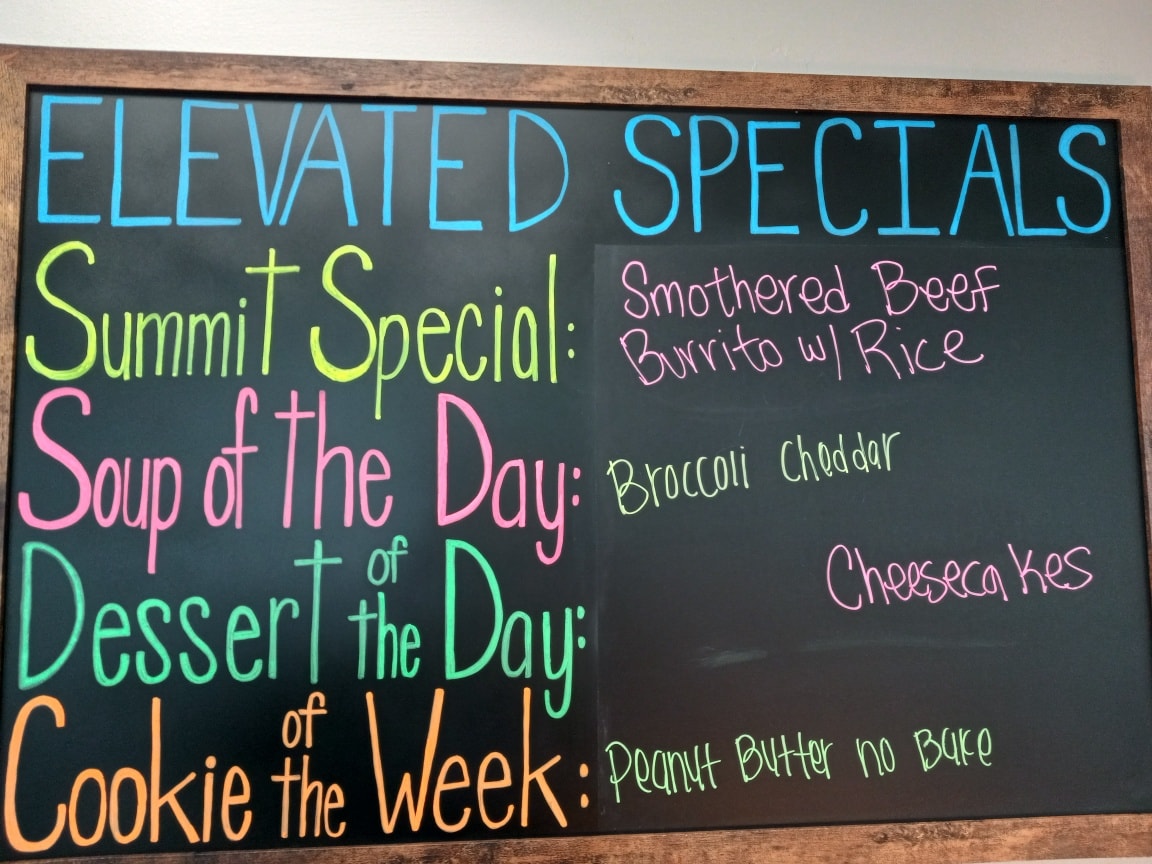 ELEVATED SPECIALS
Summit Special: Smothered Beef
Burrito w/ Rice
Soup of the Day: Broccoli Cheddar
Dessert of the Day: Cheesecakes
Cookie of the Week: Peanut Butter no Bake